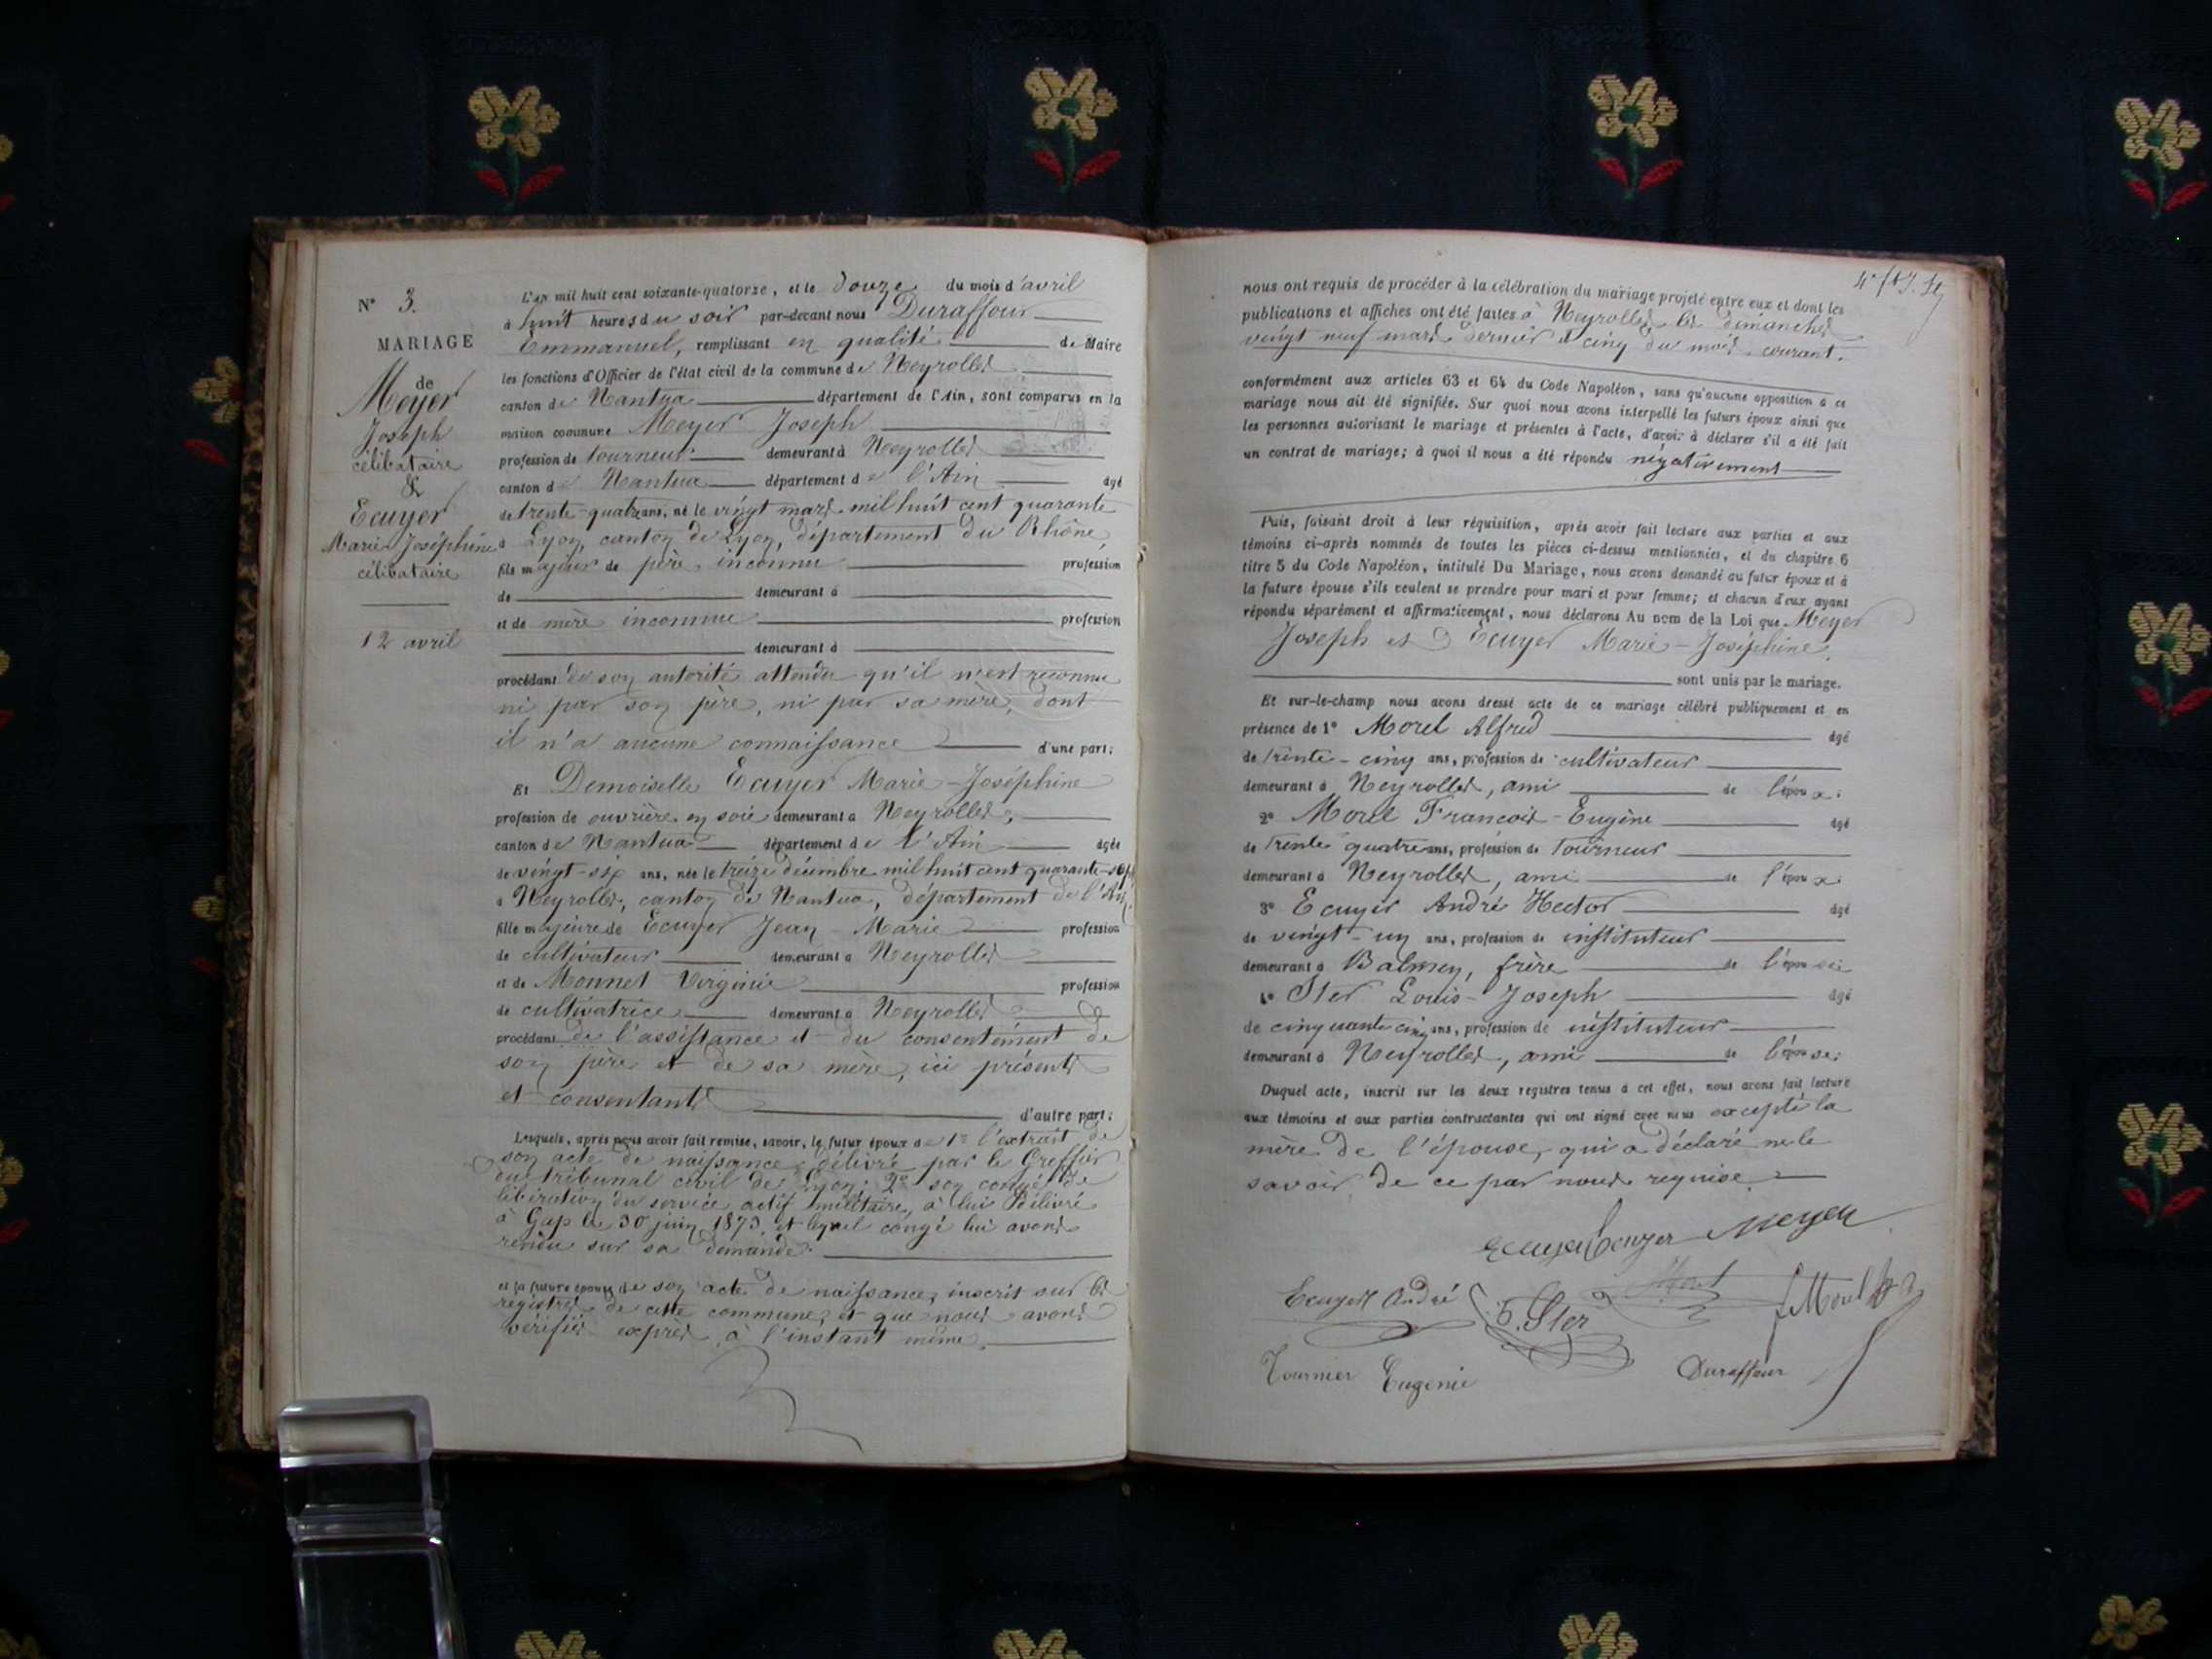 N° 3.
MARIAGE
de
Meyer
Joseph
célibataire
&
Ecuyer
Marie-Joséphine
célibataire
12 avril
L'an mil huit cent soixante-quatorze, et le douze du mois d'avril
à huit heures du soir par-devant nous Duraffour
Emmanuel, remplissant en qualité de Maire
les fonctions d'Officier de l'état civil de la commune de Neyrolles
canton de Nantua département de l'Ain, sont comparus en la
maison commune Meyer Joseph
profession de tourneur demeurant à Neyrolles
canton de Nantua département de l'Ain âgé
de trente-quatre ans, né le vingt mars mil huit cent quarante
à Lyon, canton de Lyon, département du Rhône,
fils majeur de père inconnu profession
de demeurant à
et de mère inconnue profession
demeurant à
procédant de son autorité attendu qu'il n'est reconnu
ni par son père, ni par sa mère, dont
il n'a aucune connaissance d'une part;
Et Demoiselle Ecuyer Marie-Joséphine
profession de ouvrière en soie demeurant à Neyrolles,
canton de Nantua département de l'Ain âgée
de vingt-six ans, née le treize décembre mil huit cent quarante-sept
à Neyrolles, canton de Nantua, département de l'Ain,
fille majeure de Ecuyer Jean-Marie profession
de cultivateur demeurant à Neyrolles
et de Monnet Virginie profession
de cultivatrice demeurant à Neyrolles
procédant de l'assistance et du consentement de
son père et de sa mère, ici présents
et consentants d'autre part;
Lesquels, après nous avoir fait remise, savoir, le futur époux de 1° l'extrait de
son acte de naissance délivré par le Greffier
du tribunal civil de Lyon; 2° son congé de
libération du service actif militaire, à lui délivré
à Gap le 30 juin 1873, et lequel congé lui avons
rendu sur sa demande.
et la future épouse de son acte de naissance, inscrit sur les
registres de cette commune, et que nous avons
vérifié exprès à l'instant même.
nous ont requis de procéder à la célébration du mariage projeté entre eux et dont les
publications et affiches ont été faites à Neyrolles les dimanches
vingt neuf mars dernier et cinq du mois courant.
conformément aux articles 63 et 64 du Code Napoléon, sans qu'aucune opposition à ce
mariage nous ait été signifiée. Sur quoi nous avons interpellé les futurs époux ainsi que
les personnes autorisant le mariage et présentes à l'acte, d'avoir à déclarer s'il a été fait
un contrat de mariage; à quoi il nous a été répondu négativement
Puis, faisant droit à leur réquisition, après avoir fait lecture aux parties et aux
témoins ci-après nommés de toutes les pièces ci-dessus mentionnées, et du chapitre 6
titre 5 du Code Napoléon, intitulé Du Mariage, nous avons demandé au futur époux et à
la future épouse s'ils veulent se prendre pour mari et pour femme; et chacun d'eux ayant
répondu séparément et affirmativement, nous déclarons Au nom de la Loi que Meyer
Joseph et Ecuyer Marie-Joséphine
sont unis par le mariage.
Et sur-le-champ nous avons dressé acte de ce mariage célébré publiquement et en
présence de 1° Morel Alfred âgé
de trente-cinq ans, profession de cultivateur
demeurant à Neyrolles, ami de l'époux;
2° Morel François-Eugène âgé
de trente quatre ans, profession de tourneur
demeurant à Neyrolles, ami de l'époux;
3° Ecuyer André Hector âgé
de vingt-un ans, profession de instituteur
demeurant à Balmey, frère de l'épouse;
4° Ster Louis-Joseph âgé
de cinquante cinq ans, profession de instituteur
demeurant à Neyrolles, ami de l'épouse;
Duquel acte, inscrit sur les deux registres tenus à cet effet, nous avons fait lecture
aux témoins et aux parties contractantes qui ont signé avec nous excepté la
mère de l'épouse, qui a déclaré ne le
savoir de ce par nous requise.
Ecuyer Ecuyer Meyer
Ecuyer André J. Ster Morel f. Morel
Tournier Eugénie Duraffour